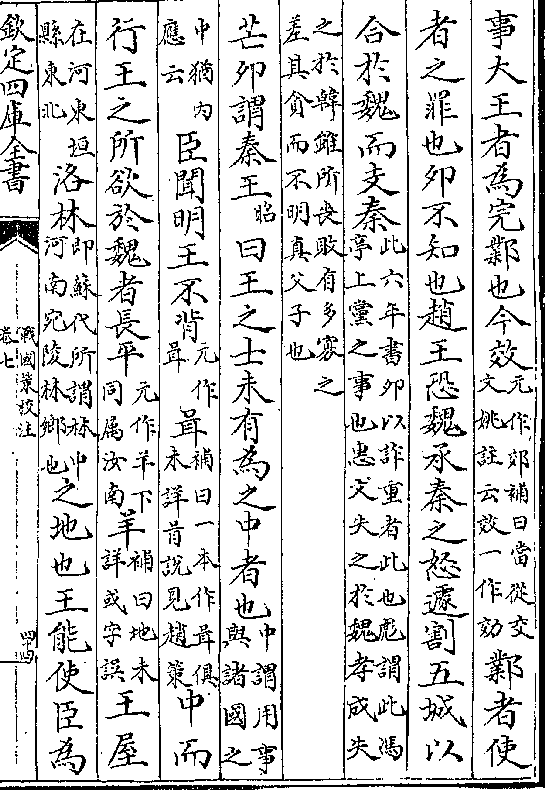 事大王者為完鄴也今效元作郊補曰當從交文姚註云效一作効鄴者使
者之罪也卯不知也趙王恐魏承秦之怒遽割五城以
合於魏而支秦此六年書卯以詐重者此也彪謂此馮亭上黨之事也惠文失之於魏孝成失
之於韓雖所喪敢有多寡之差其貪而不明真父子也
芒卯謂秦王昭曰王之士未有為之中者也中謂用事與諸國之
中猶內應云臣聞明王不背元作咠咠補曰一本作咠俱未詳胥說見趙策中而
行王之所欲於魏者長平元作羊下同属汝南羊補曰地未詳或字誤王屋
在河東垣縣東北洛林即蘇代所謂林中河南宛陵林鄉也之地也王能使臣為
欽定四庫全書
戰國策校注
卷七
四十四